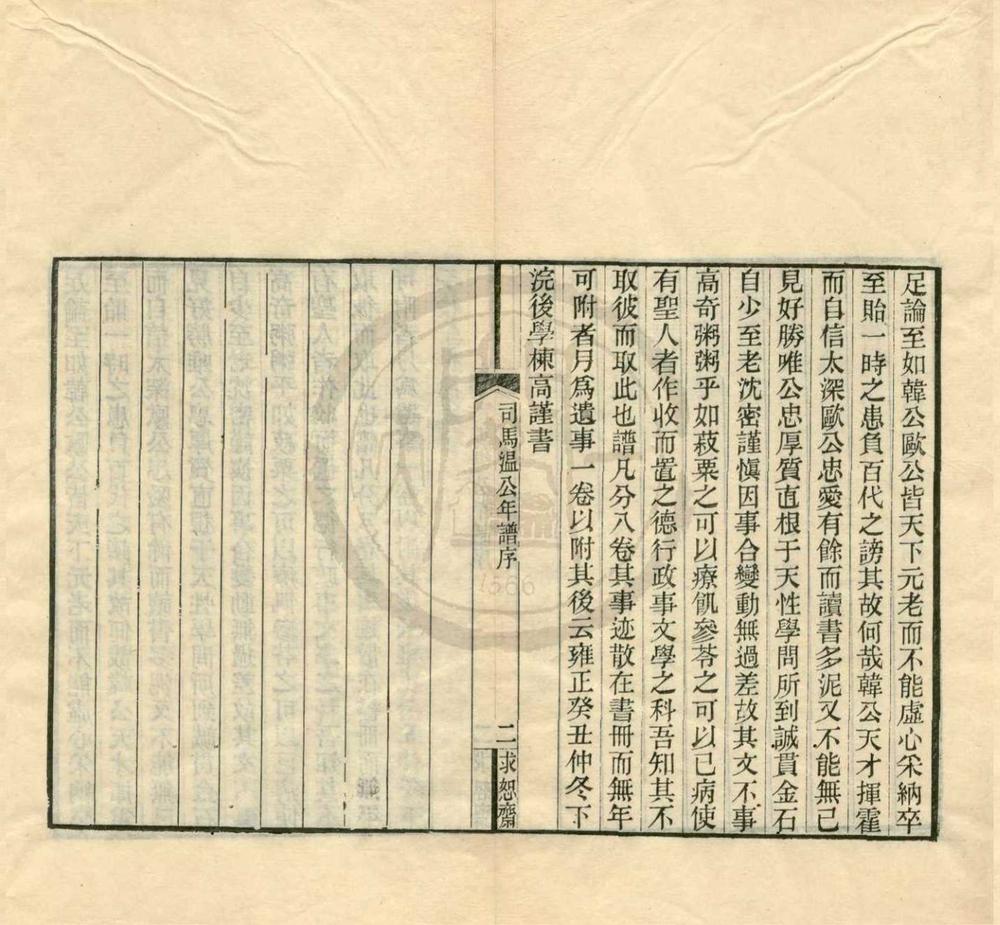 足論至如韓公歐公皆天下元老而不能虛心采納卒
至貽一時之患負百代之謗其故何哉韓公天才揮霍
而自信太深歐公忠愛有餘而讀書多泥又不能無己
見好勝唯公忠厚質直根于天性學問所到誠貫金石
自少至老沈密謹慎因事合變動無過差故其文不事
高奇粥粥乎如菽粟之可以療飢參苓之可以已病使
有聖人者作收而置之德行政事文學之科吾知其不
取彼而取此也譜凡分八卷其事迹散在書冊而無年
可附者另為遺事一卷以附其後云雍正癸丑仲冬下
浣後學棟高謹書
司馬溫公年譜序
二
求恕齋